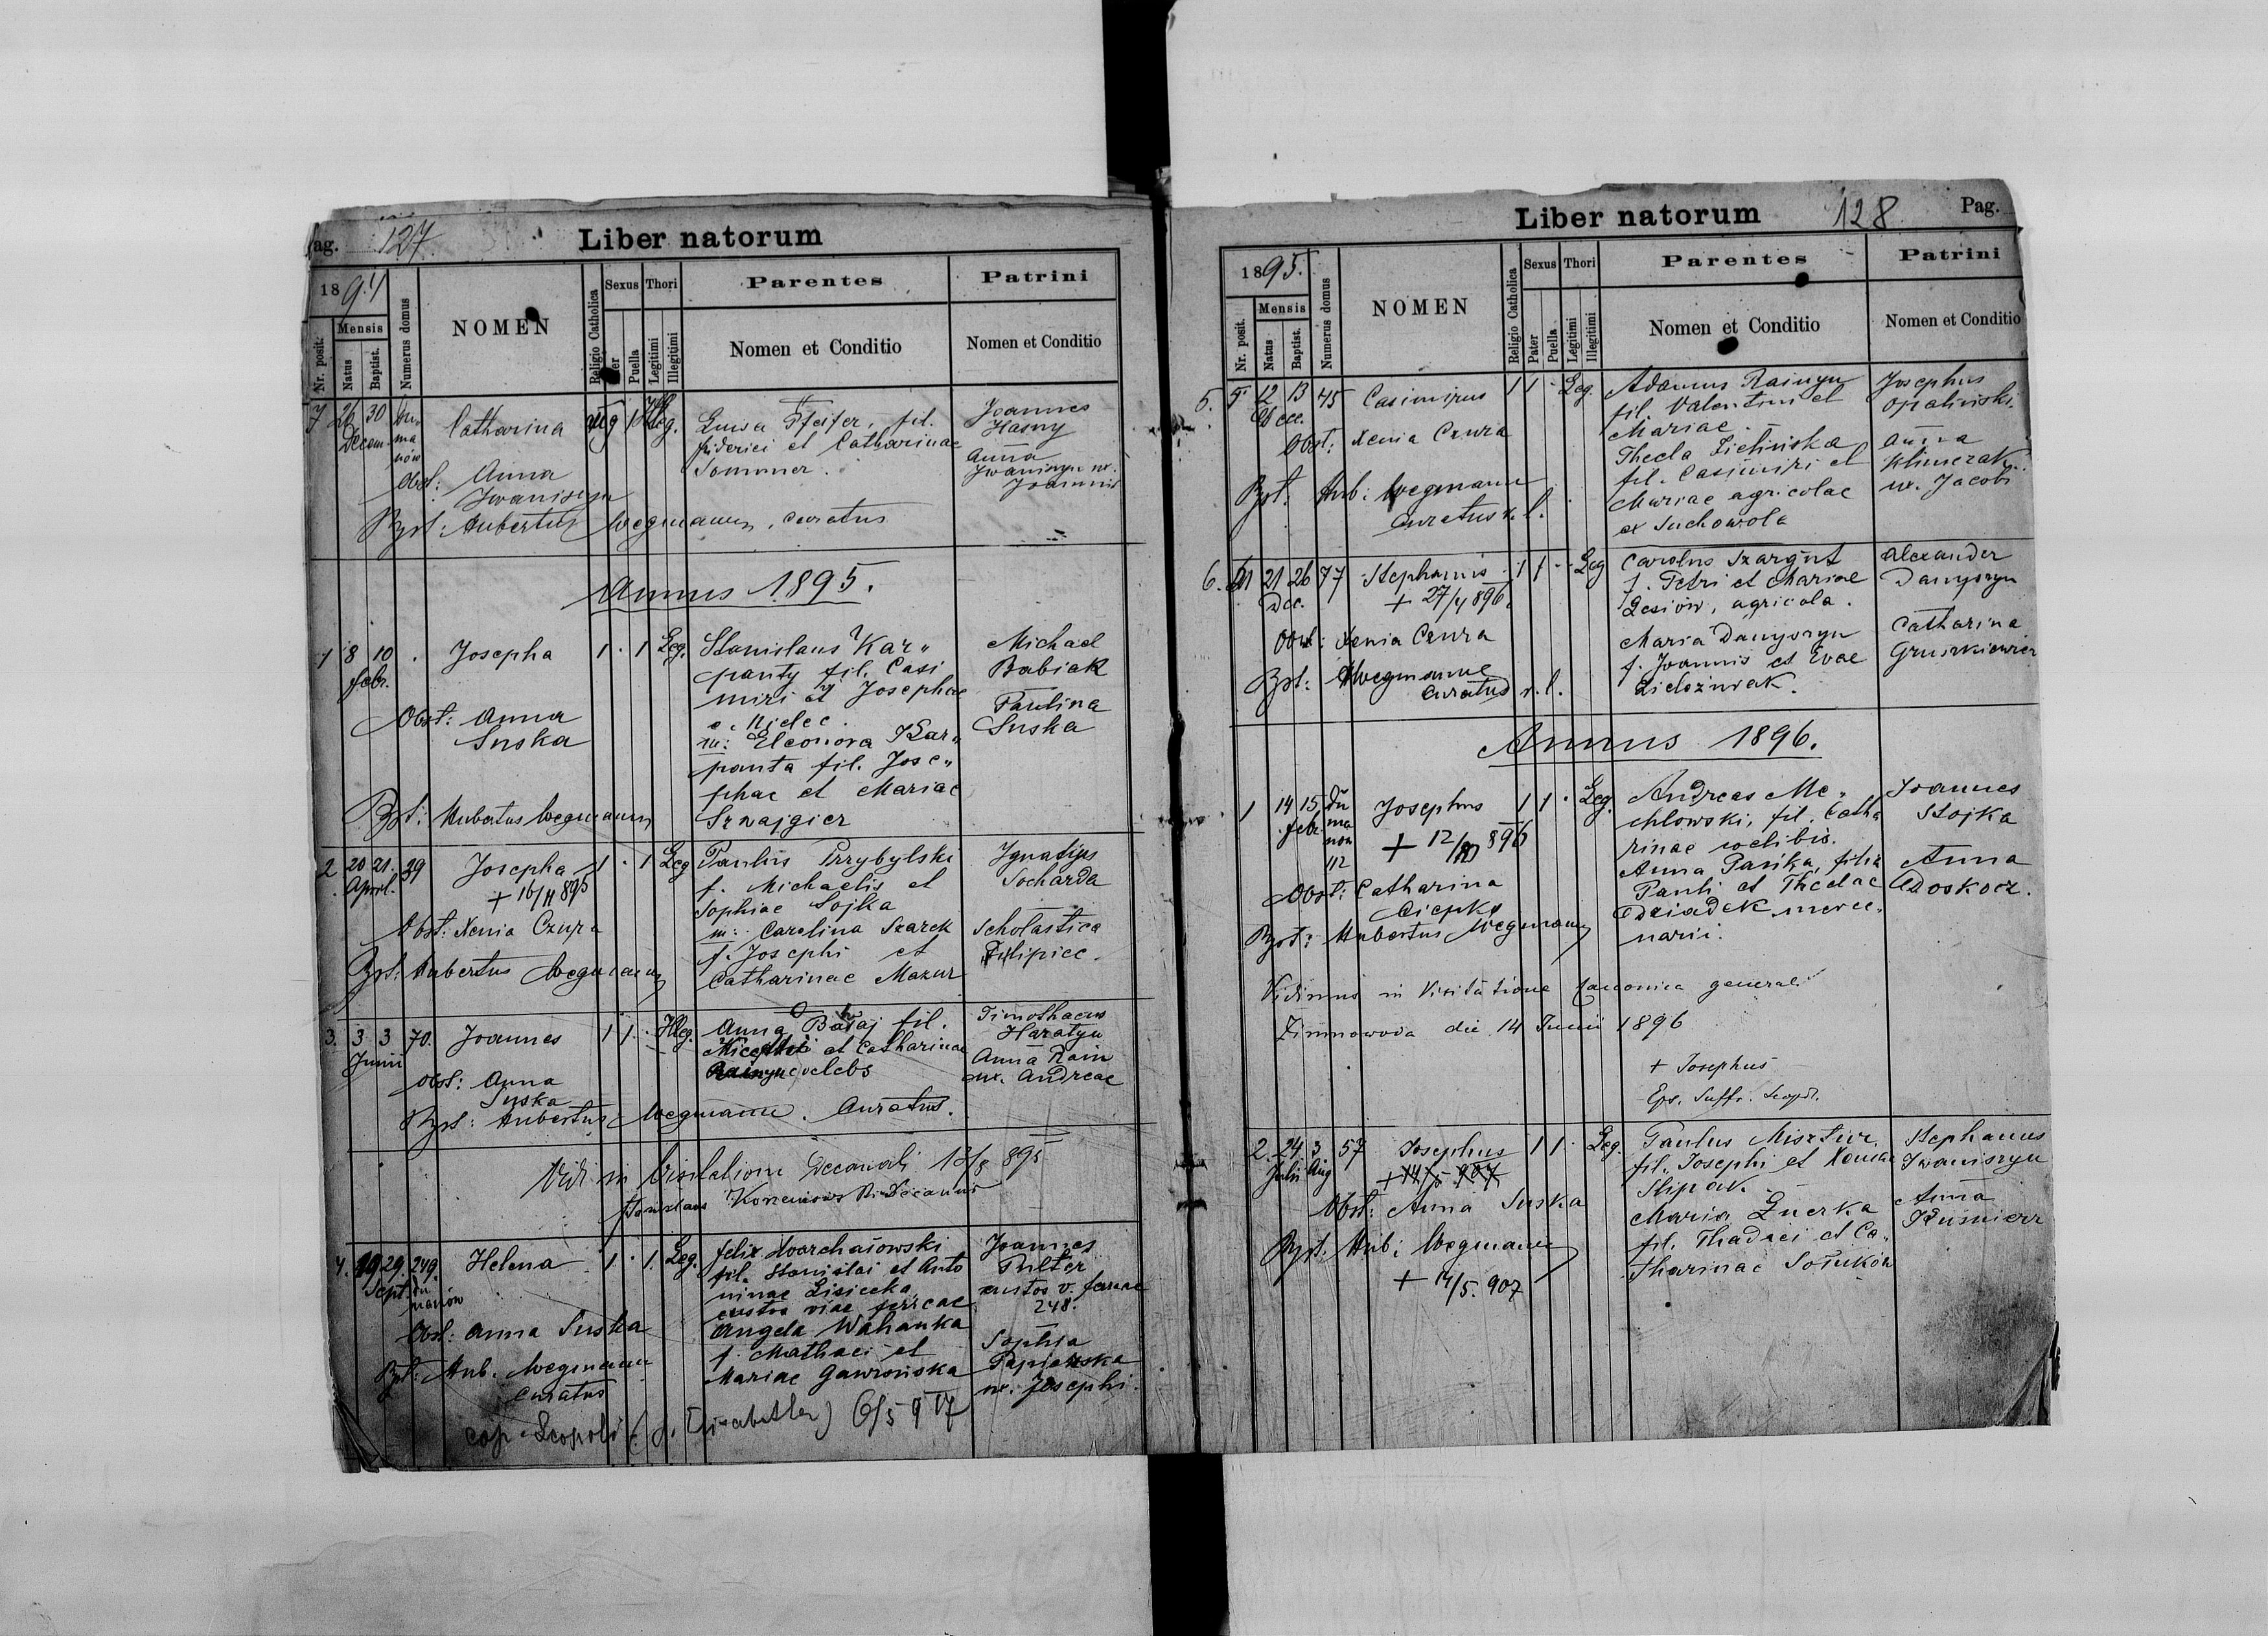 ag. 127.
Liber natorum
1894
Nr. posit.
Mensis
Natus
Baptist.
Numerus domus
NOMEN
Religio Catholica
Sexus
Puella
Thori
Legitimi
Illegitimi
Parentes
Nomen et Conditio
Patrini
Nomen et Conditio
7 26 30 Du
Decem. ma
nów
Catharina
Illeg.
Luisa Pfeifer, fil.
friderici et Catharinae
Sommer.
Joannes
Hasny
Anna
Iwaniszyn ux.
Joannis
Obst: Anna
Iwaniszyn
Bpt: Hubertus Wegmann, curatus
Annus 1895.
1 8 10 . Josepha 1 . 1 Leg.
febr.
Stanislaus Kar„
panty fil. Casi
miri et Josephae
o. Kielec.
m: Eleonora Kar„
panta fil. Jose„
phae et Mariae
Szwajgier
Michael
Babiak
Paulina
Suska
Obst: Anna
Suska
Bpt: Hubertus Wegmann
2 20 21. 39 Josepha 1 . 1 Leg
April.
+ 16/11 895
Paulus Przybylski
f. Michaelis et
Sophiae Sojka
m: Carolina Szarek
f. Josephi et
Catharinae Mazur
Ignatius
Socharda
Scholastica
Filipiec.
Obst: Xenia Czura
Bpt: Hubertus Wegmann
3. 3 3 70. Joannes 1 1 . Illeg.
Junii
Anna Bataj fil.
et Catharinae
coelebs
Timothaeus
Haratyn
Anna Rain
ux. Andreae
Obst: Anna
Suska
Bpt: Hubertus Wegmann. Curatus.
Vidi in Visitatione Decanali 13/8 895
4. 19 29. 249. Helena 1 . 1. Leg.
Sept. Du
manów
felix Worchaiowski
fil. Stanislai et Anto
ninae Lisiecka,
custos viae ferreae
Angela Wahanka
f. Mathaei et
Mariae Gawrońska
Joannes
Pulter
custos v. ferreae
248.
Sophia
ux. Josephi.
Obst: Anna Suska
Bpt: Hub. Wegmann
Curatus
cop. Leopoli 6/5 917
Liber natorum
128. Pag.
1895.
Nr. posit.
Mensis
Natus
Baptist.
Numerus domus
NOMEN
Religio Catholica
Sexus
Pater
Puella
Thori
Legitimi
Illegitimi
Parentes
Nomen et Conditio
Patrini
Nomen et Conditio
5. 5 12 13 45 Casimirus 1 1 . Leg.
Dece.
Adamus Rainyn
fil. Valentini et
Mariae.
Thecla Zielińska
fil. Casimiri et
Mariae agricolae
ex Suchowola
Josephus
Opaliński.
Anna
Klimczak
ux. Jacobi
Obst: Xenia Czura
Bpt: Hub: Wegmann
Curatus r. l.
6. 21 26 77 Stephanus 1 1 . Leg
Dec.
+ 27/4 896.
Carolus Szargut
f. Petri et Mariae
Lesiów, agricola.
Maria Danyszyn
f. Joannis et Evae
Alexander
Danyszyn
Catharina
Gruszkiewicz
Obst: Xenia Czura
Bpt: HWegmann
Curatus r. l.
Annus 1896.
1 14 15 Du Josephus 1 1 . Leg.
febr. ma
now
112
Andreas Me„
chlowski, fil. Catha
rinae coelibis.
Anna Pańka, filia
Pauli et Theclae
Dziadek merce„
narii.
Joannes
Stojka
Anna
Doskocz.
Obst: Catharina
Ciepka
Bpt: Hubertus Wegmann
Vidimus in Visitatione Canonica generali
Zimnowoda die 14 Junii 1896
+ Josephus
Eps. Suffr. Leopol.
2. 24. 3 57 Josephus 1 1 . Leg.
Julii Aug
+ 14/5 907
Paulus Misztur.
fil. Josephi et Xeniae
Slipak.
Maria Zuerka
fil. Thadaei et Ca„
tharinae Soluków
Stephanus
Iwaniszyn
Anna
Kuśnierz
Obst: Anna Suska
Bpt. Hub: Wegmann
+ 14/5. 907